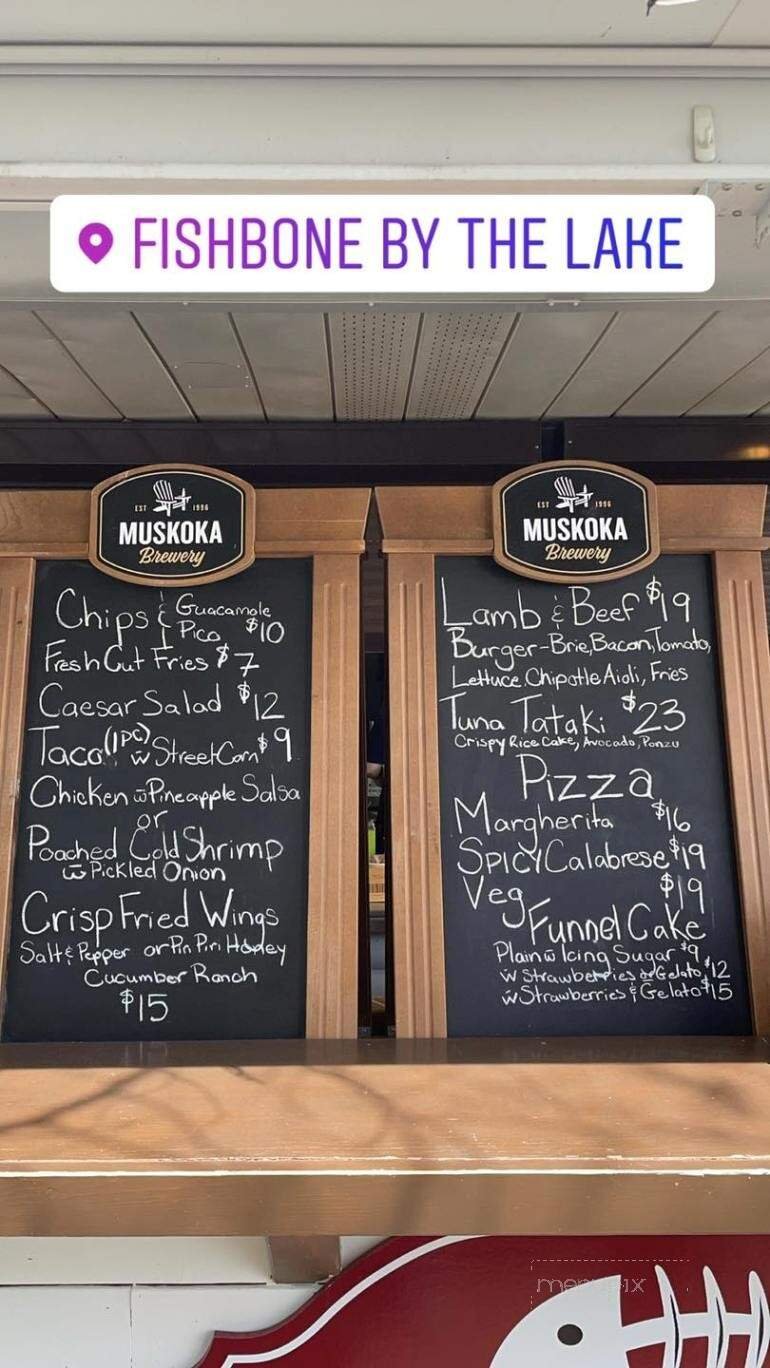 FISHBONE BY THE LAKE
EST 1996
MUSKOKA
Brewery
Chips & Guacamole
Pico $10
Fresh Cut Fries $7
Caesar Salad $12
Taco (1pc) w Street Corn $9
Chicken w Pineapple Salsa
or
Poached Cold Shrimp
w Pickled Onion
Crisp Fried Wings
Salt & Pepper or Piri Piri Honey
Cucumber Ranch
$15
EST 1996
MUSKOKA
Brewery
Lamb & Beef $19
Burger-Brie, Bacon, Tomato,
Lettuce, Chipotle Aioli, Fries
Tuna Tataki $23
Crispy Rice Cake, Avocado, Ponzu
Pizza
Margherita $16
SPICY Calabrese $19
Veg $19
Funnel Cake
Plain w Icing Sugar $9
w Strawberries or Gelato $12
w Strawberries & Gelato $15